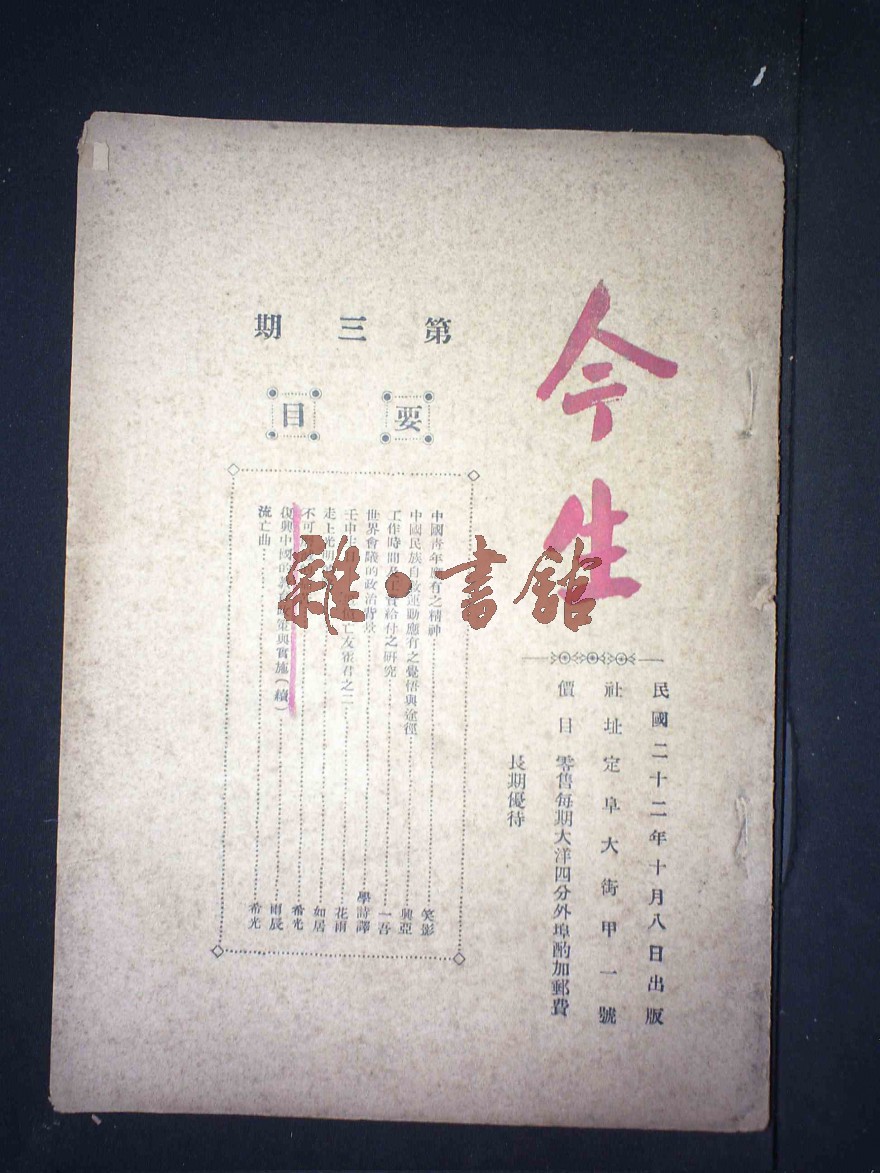 今生
民國二十二年十月八日出版
社址定阜大街甲一號
價目 零售每期大洋四分外埠酌加郵費
長期優待
第三期
要目
中國青年應有之精神 笑影
中國民族自救運動應有之覺悟與途徑 興亞
工作時間及工資給付之研究 一吾
世界會議的政治背景 學詩譯
壬申 亡友張君之二 花雨
走上光明 如居
不可 希光
復興中國的 政策與實施(續) 雨辰
流亡曲 希光
雜·書館